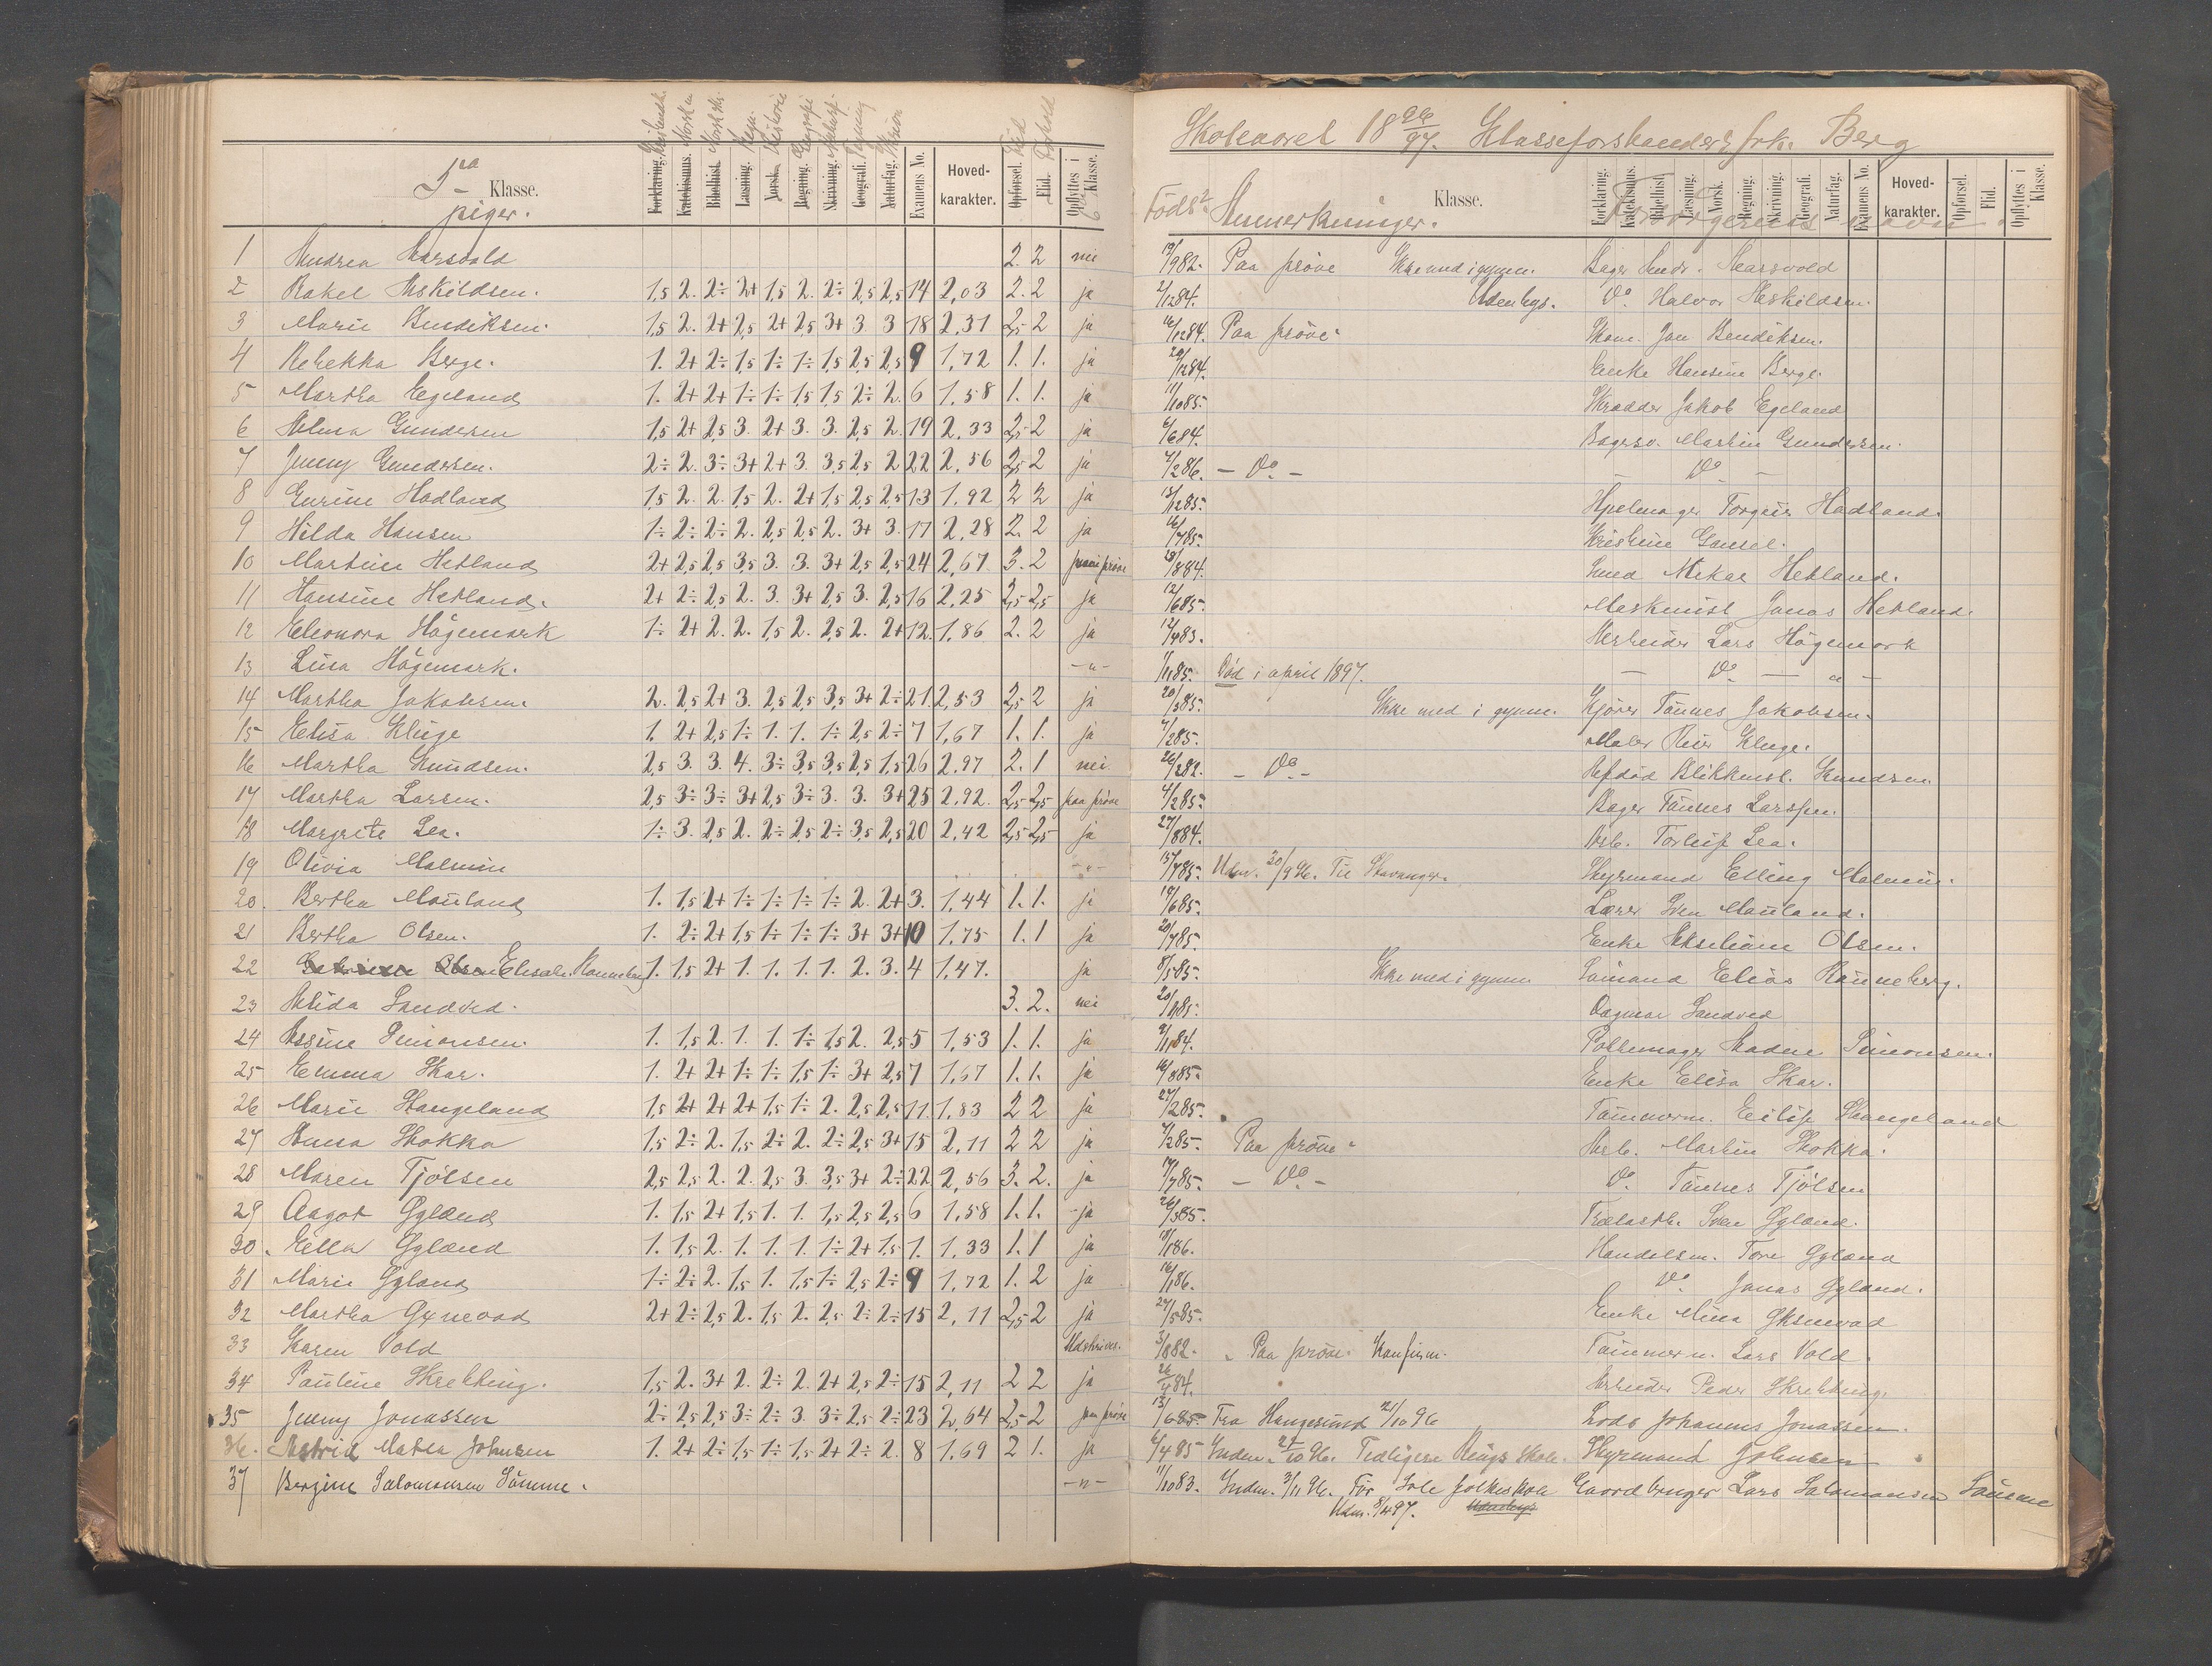 5 a Klasse.
piger.
Forklaring. Katekismus. Bibelhist. Læsning. Norsk. Regning. Skrivning. Geografi. Naturfag. Examens No. Hoved-karakter. Opførsel. Flid. Opflyttes i 6 Klasse.
1 Andrea Aarsvold 2. 2 nei
2 Rakel Askildsen. 1,5 2. 2÷ 2+ 1,5 2. 2÷ 2,5 2,5 14 2,03 2. 2 ja
3 Marie Bendiksen. 1,5 2. 2+ 2,5 2+ 2,5 3+ 3 3 18 2,31 2,5 2 ja
4 Rebekka Berge. 1. 2+ 2÷ 1,5 1÷ 1÷ 1,5 2,5 2,5 9 1,72 1. 1. ja
5 Martha Egeland 1. 2+ 2+ 1÷ 1÷ 1,5 1,5 2÷ 2. 6 1,58 1. 1. ja
6 Alma Gundersen 1,5 2+ 2,5 3. 2+ 3. 3. 2,5 2. 19 2,33 2,5 2 ja
7 Jenny Gundersen. 2÷ 2. 3÷ 3+ 2+ 3. 3,5 2,5 2 22 2,56 2,5 2 ja
8 Gurine Hadland 1,5 2. 2. 1,5 2. 2+ 1,5 2,5 2,5 13 1,92 2 2 ja
9 Hilda Hansen 1÷ 2÷ 2÷ 2. 2,5 2,5 2. 3+ 3. 17 2,28 2. 2 ja
10 Martine Hetland 2+ 2,5 2,5 3,5 3. 3. 3+ 2,5 2,5 24 2,67 3. 2 paa prøve
11 Hansine Hetland. 2+ 2÷ 2,5 2. 3. 3+ 2,5 3. 2,5 16 2,25 2,5 2,5 ja
12 Eleonora Högemark 1÷ 2+ 2. 2. 1,5 2. 2,5 2. 2+ 12. 1,86 2. 2 ja
13 Lina Högemark. -"-
14 Martha Jakobsen. 2. 2,5 2+ 3. 2,5 2,5 3,5 3+ 2÷ 21. 2,53 2,5 2 ja
15 Elisa Kluge 1. 2+ 2,5 1÷ 1. 1. 1÷ 2,5 2÷ 7 1,67 1. 1. ja
16 Martha Knudsen. 2,5 3. 3. 4. 3÷ 3,5 3,5 2,5 1,5 26 2,97 2. 1 nei
17 Martha Larsen. 2,5 3÷ 3÷ 3+ 2,5 3÷ 3. 3. 3+ 25 2,92. 2,5 2,5 paa prøve
18 Margrete Lea. 1÷ 3. 2,5 2. 2÷ 2,5 2÷ 3,5 2,5 20 2,42 2,5 2,5 ja
19 Olivia Malmin -"-
20. Bertha Mauland 1. 1,5 2+ 1÷ 1÷ 1÷ 1÷ 2. 2+ 3. 1,44 1. 1. ja
21 Bertha Olsen. 1. 2÷ 2+ 1,5 1÷ 1÷ 1÷ 3+ 3+ 10 1,75 1. 1 ja
22 Olsen Elisab. Ranneberg 1. 1,5 2+ 1. 1. 1. 1. 2. 3. 4 1,47. ja
23 Alida Sandved. 3. 2. nei
24 Assine Simonsen. 1. 1,5 2. 1. 1. 1÷ 1,5 2. 2,5 5 1,53 1. 1. ja
25 Emma Skar. 1. 2+ 2+ 1÷ 1÷ 1,5 1÷ 3+ 2,5 7 1,67 1. 1. ja
26 Marie Stangeland 1,5 2+ 2+ 2+ 1,5 1÷ 2. 2,5 2,5 11 1,83 2 2 ja
27 Anna Stokka 1,5 2÷ 2. 1,5 2÷ 2. 2÷ 2,5 3+ 15 2,11 2 2 ja
28 Maren Tjölsen 2,5 2,5 2. 2. 2,5 3. 3,5 3+ 2÷ 22 2,56 3. 2. ja
29 Aagot Gyland 1. 1,5 2+ 1,5 1. 1. 1,5 2,5 2,5 6 1,58 1. 1. ja
30. Ella Gyland 1. 1,5 2. 1. 1. 1. 1÷ 2+ 1,5 1. 1,33 1. 1 ja
31 Marie Gyland 1÷ 2÷ 2. 1,5 1. 1,5 1÷ 2,5 2÷ 9 1,72 1. 2 ja
32 Martha Gxnevad 2+ 2÷ 2,5 2. 1,5 2. 2,5 2÷ 2÷ 15 2,11 2,5 2 ja
33 Karen Vold Udskrives.
34 Pauline Skretting. 1,5 2. 3+ 2. 2÷ 2. 2+ 2,5 2÷ 15 2,11 2 2 ja
35 Jenny Jonassen 2÷ 2,5 2,5 3÷ 2÷ 3. 3÷ 2,5 2÷ 23 2,64 2,5 2 paa prøve
36. Astrid Mabea Johnsen 1. 2+ 2÷ 1,5 1÷ 1,5 2+ 2÷ 2. 8 1,69 2 1. ja
37 Bergine Salomonsen Sömme. -"-
Skoleaaret 18 96/97. Klasseforstander: frk. Berg
Födt. Anmerkninger. Klasse. Forsörgerens navn
Forklaring. Katekismus. Bibelhist. Læsning. Norsk. Regning. Skrivning. Geografi. Naturfag. Examens No. Hoved-karakter. Opførsel. Flid. Opflyttes i Klasse.
19/9 82. Paa pröve Ikke med i gymn. Bager Andr. Aarsvold
2/12 84. Udenbys. Do. Halvor Askildsen.
16/12 84. Paa pröve. Skom. Jan Bendiksen.
20/12 84. Enke Hansine Berge.
11/10 85. Skrædder Jakob Egeland
6/6 84. Bagersv. Martin Gundersen.
7/2 86. – Do – – Do –
13/12 85. Torgeir Hadland.
16/7 85. Kristine Gausel.
28/8 84. Smed Mikal Hetland.
12/6 85. Maskinist Jonas Hetland.
12/4 83. Arbeider Lars Högemark
11/1 85. Död i april 1897. – Do – " –
20/5 85. Ikke med i gymn. Kjörer Tönnes Jakobsen.
7/2 85. Maler Kluge.
26/2 82. – Do – Afdöd Blikkensl. Knudsen.
4/2 85. Bager Tönnes Larssen.
27/8 84. Arb. Torleif Lea.
15/7 85. Udm. 30/9 96. Til Stavanger. Styrmand Elling Malmin.
18/6 85. Lærer Sven Mauland.
20/7 85. Enke Olsen.
8/5 85. Ikke med i gymn. Sömand Elias Ranneberg.
20/1 85. Dagmar Sandved
9/11 84. Pottemager Simonsen.
16/8 85. Enke Elisa Skar.
27/2 85. Tömmerm. Eilif Stangeland
7/2 85. Paa pröve. Arb. Martin Stokka.
17/7 85. – Do – Do. Tönnes Tjölsen
26/3 85. Trælasth. Sven Gyland.
18/1 86. Handelsm. Tore Gyland
16/1 86. Do. Jonas Gyland.
24/5 85. Enke Mina
3/1 82. Paa pröve. Konfirm. Tömmerm. Lars Vold.
26/4 84. Arbeider Peder Skretting.
13/6 85. Fra Haugesund 21/10 96 Lods Johannes Jonassen.
6/4 85 Indm. 27/10 96. Tidligere Kings skole. Styrmand Johnsen
11/10 83. Indm. 3/11 96. Før Sole folkeskole Gaardbruger Lars Salomonsen Sömme
Udm. 8/4 97. Udenbys